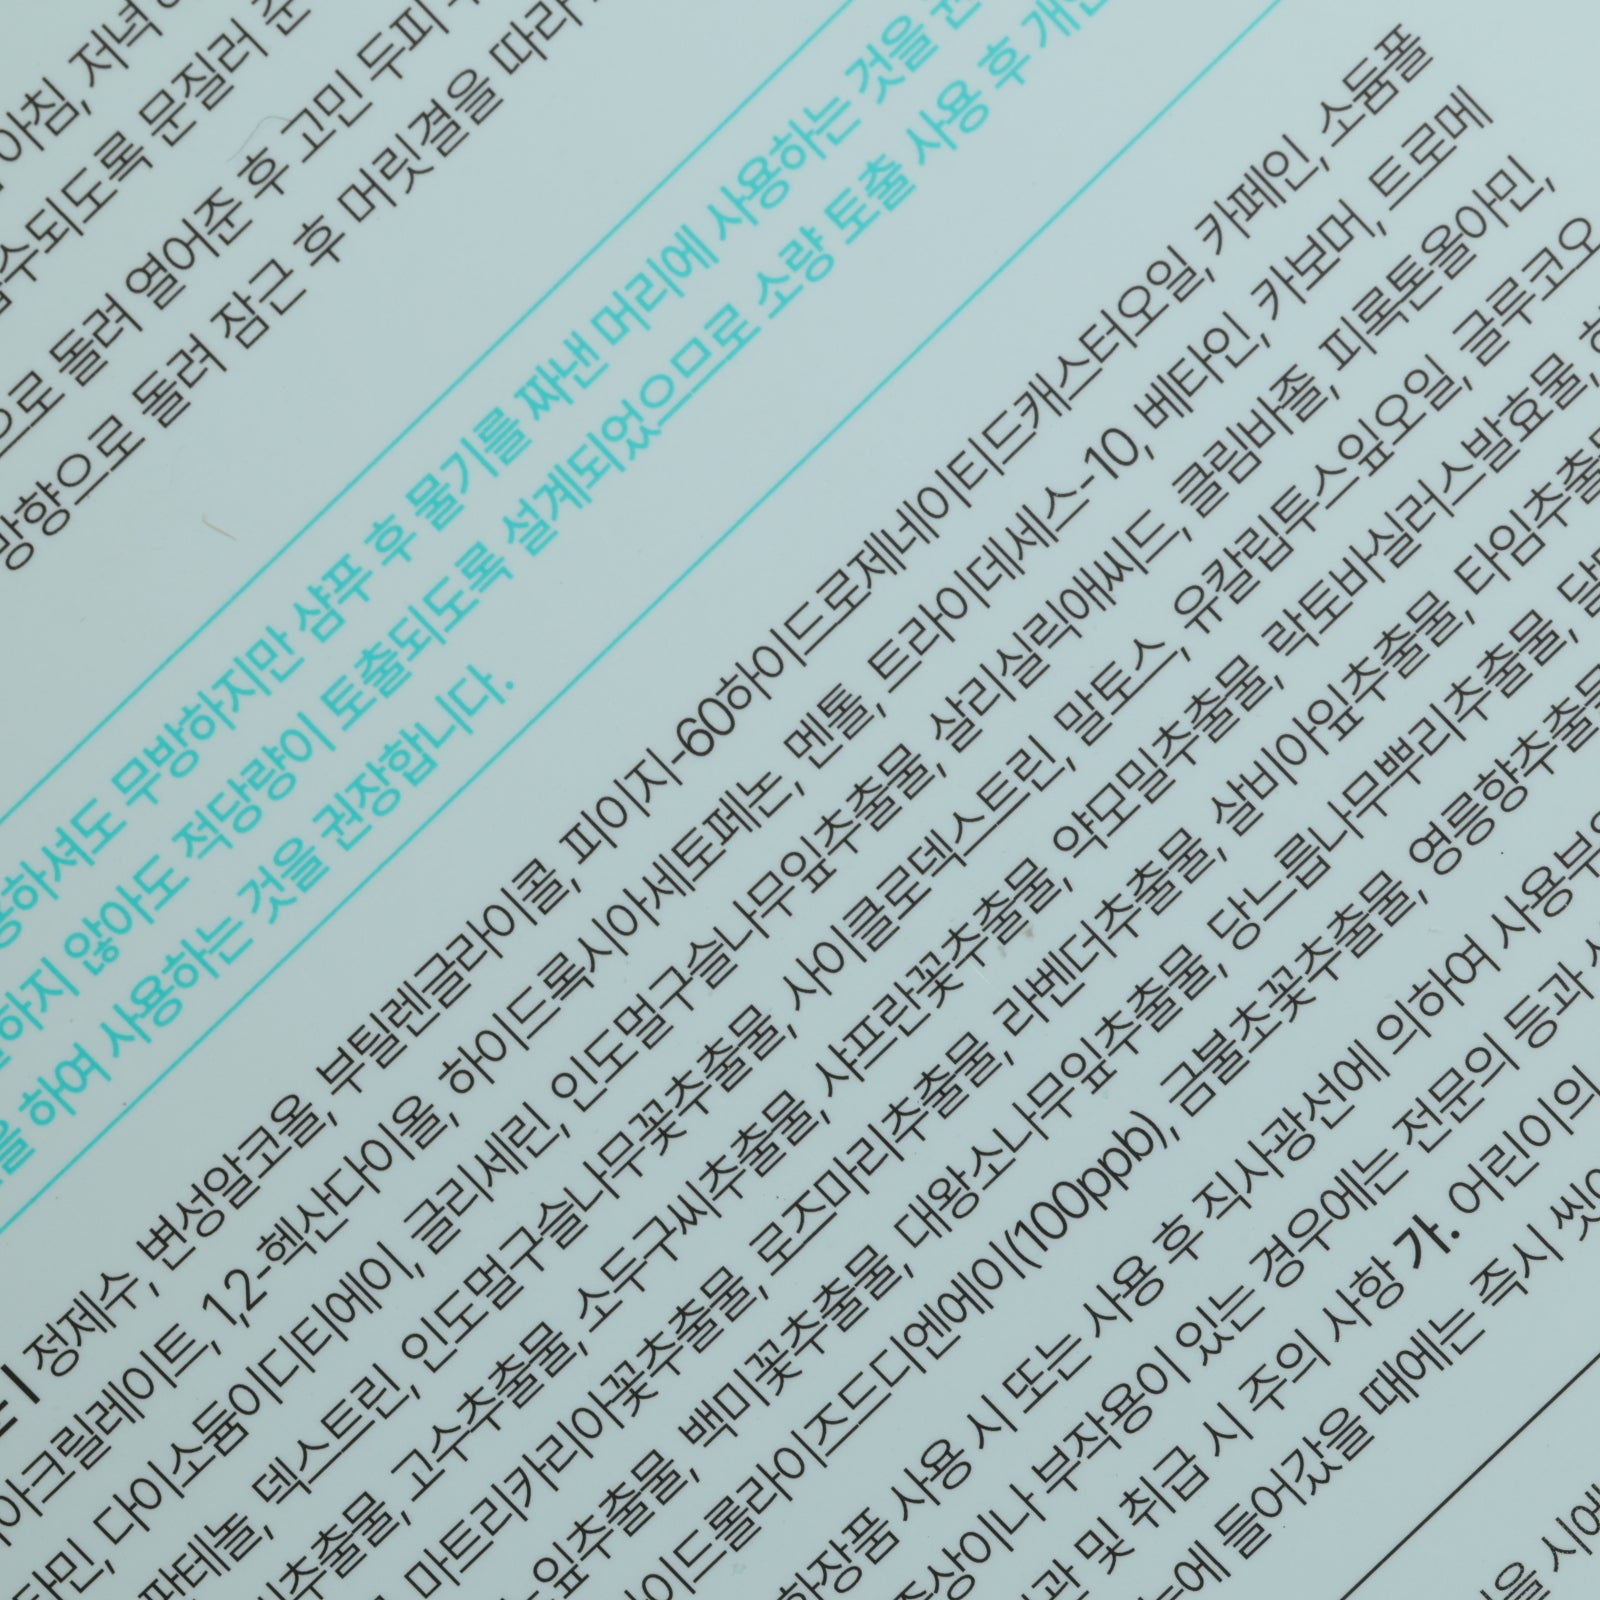 아침, 저녁
흡수되도록 문질러 준
으로 돌려 열어준 후 고민 두피
방향으로 돌려 잠근 후 머릿결을 따라
사용하셔도 무방하지만 샴푸 후 물기를 짜낸 머리에 사용하는 것을
하지 않아도 적당량이 토출되도록 설계되었으므로 소량 토출 사용 후
을 하여 사용하는 것을 권장합니다.
정제수, 변성알코올, 부틸렌글라이콜, 피이지-60하이드로제네이티드캐스터오일, 카페인, 소듐폴
아크릴레이트, 1,2-헥산다이올, 하이드록시아세토페논, 멘톨, 트라이데세스-10, 베타인, 카보머, 트로메
타민, 다이소듐이디티에이, 글리세린, 인도멀구슬나무잎추출물, 살리실릭애씨드, 클림바졸, 피록톤올아민,
판테놀, 덱스트린, 인도멀구슬나무꽃추출물, 사이클로덱스트린, 말토스, 유칼립투스잎오일, 글루코오
추출물, 고수추출물, 소두구씨추출물, 샤프란꽃추출물, 약모밀추출물, 락토바실러스발효물,
마트리카리아꽃추출물, 로즈마리추출물, 라벤더추출물, 살비아잎추출물, 타임추출
잎추출물, 백미꽃추출물, 대왕소나무잎추출물, 당느릅나무뿌리추출물,
이드롤라이즈드디엔에이(100ppb), 금불초꽃추출물, 영릉향추출물
화장품 사용 시 또는 사용 후 직사광선에 의하여 사용부
증상이나 부작용이 있는 경우에는 전문의 등과
관 및 취급 시 주의 사항 가. 어린이의
눈에 들어갔을 때에는 즉시
을 시에